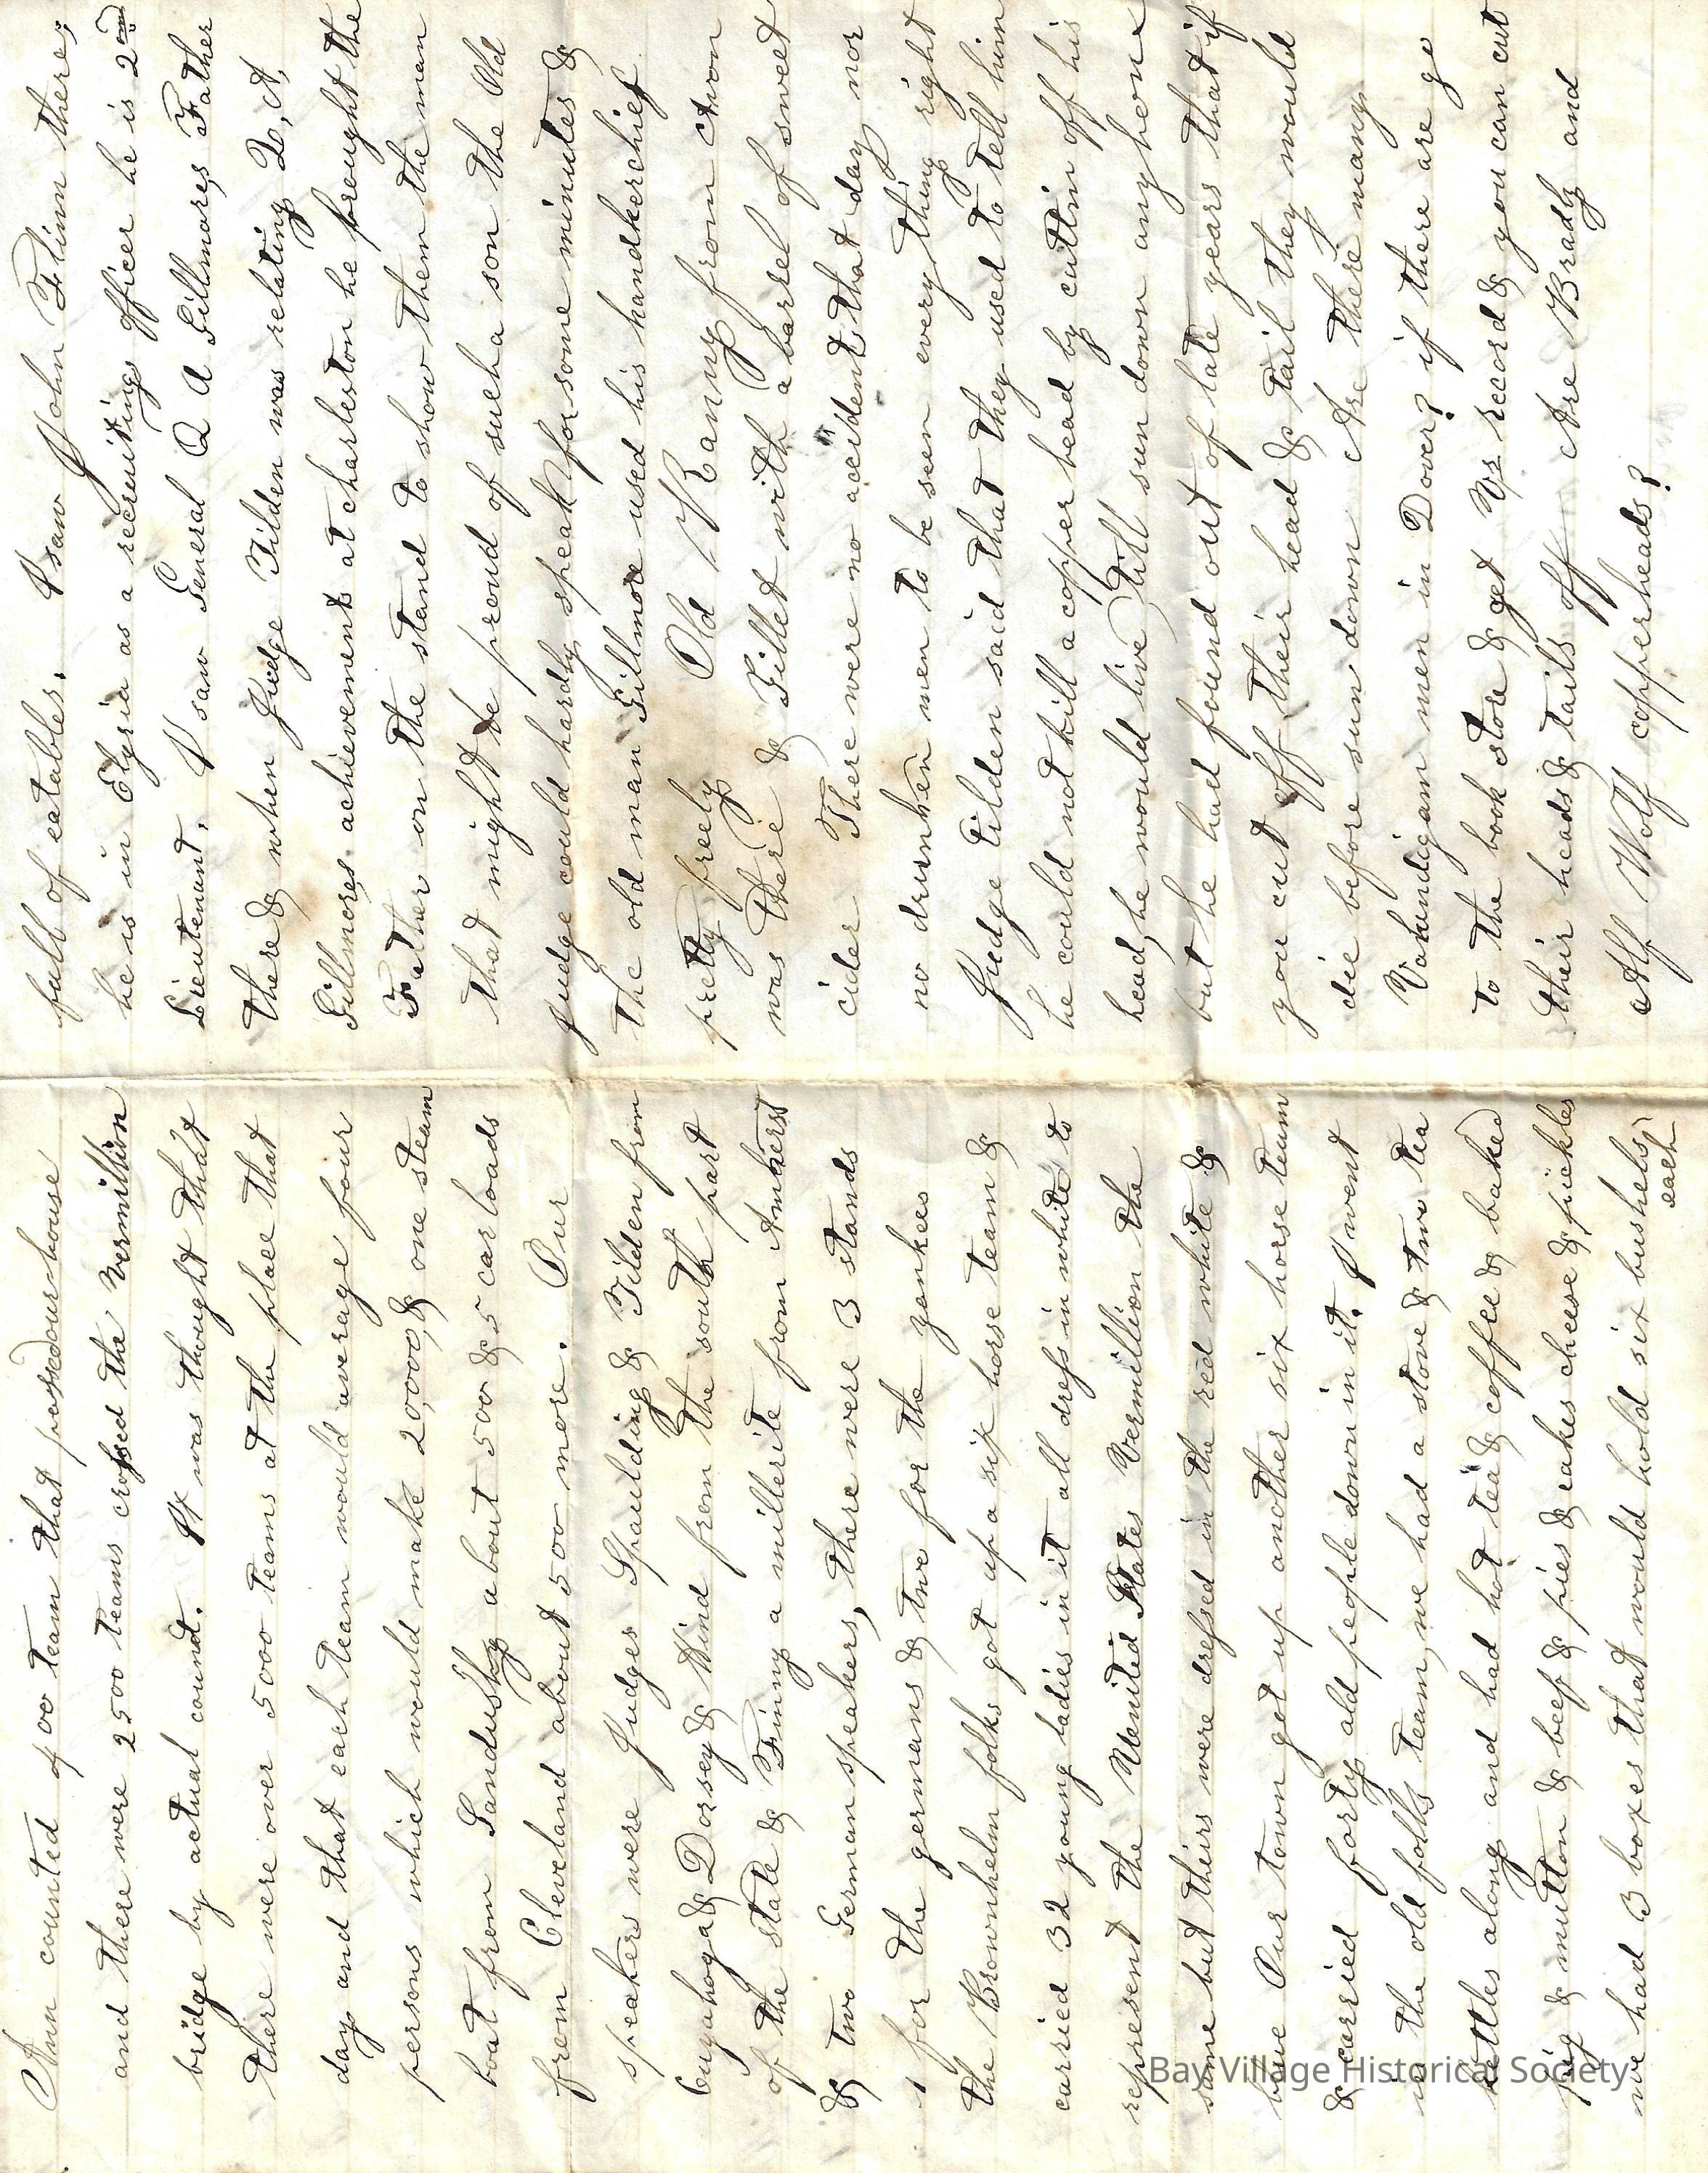 Ann counted 400 team that passed our house
and there were 2500 teams crossed the Vermillion
bridge by actual count. It was thought that
there were over 5000 teams at the place that
day and that each team would average four
persons which would make 20,000, & one steam
boat from Sandusky about 500 & 5 car loads
from Cleveland about 500 more. Our
speakers were Judges Spaulding & Tilden from
Cuyahoga & Dorsey & Wind from the south part
of the state & Finny a millerite from Amherst
& two German speakers, there were 3 stands
1 for the germans & two for the yankees
the Brownhelm folks got up a six horse team &
carried 32 young ladies in it all dress in white to
represent the United States Vermillion the
same but theirs were dressed in the red white &
blue Our town got up another six horse team
& carried forty old people down in it. I went
in the old folks team, we had a stove & two tea
kettles along and had hot tea & coffee & baked
pig & mutton & beef & pies & cakes cheese & pickles
we had 3 boxes that would hold six bushels
each
full of eatables. I saw John Flinn there,
he is in Elyria as a recruiting officer he is 2nd
Lieutenant. I saw General Q A Gillmores Father
there & when Judge Tilden was relating Q, A,
Gillmores achievement at charleston he brought the
Father on the stand to show them the man
that might be proud of such a son the Old
Judge could hardly speak for some minutes &
the old man Gillmore used his handkerchief
pretty freely Old Ranny from Avon
was there & Fillet with a barrel of sweet
cider There were no accidents that day nor
no drunken men to be seen every thing right
Judge Tilden said that they used to tell him
he could not kill a copper head by cuttin off his
head, he would live till sun down any how
but he had found out of late years that if
you cut off their head & tail they would
die before sun down Are there many
Valundigam men in Dover? if there are go
to the book store & get Vs record & you can cut
their heads & tails off Are Brady and
Alf Wolf copperheads?
Bay Village Historical Society